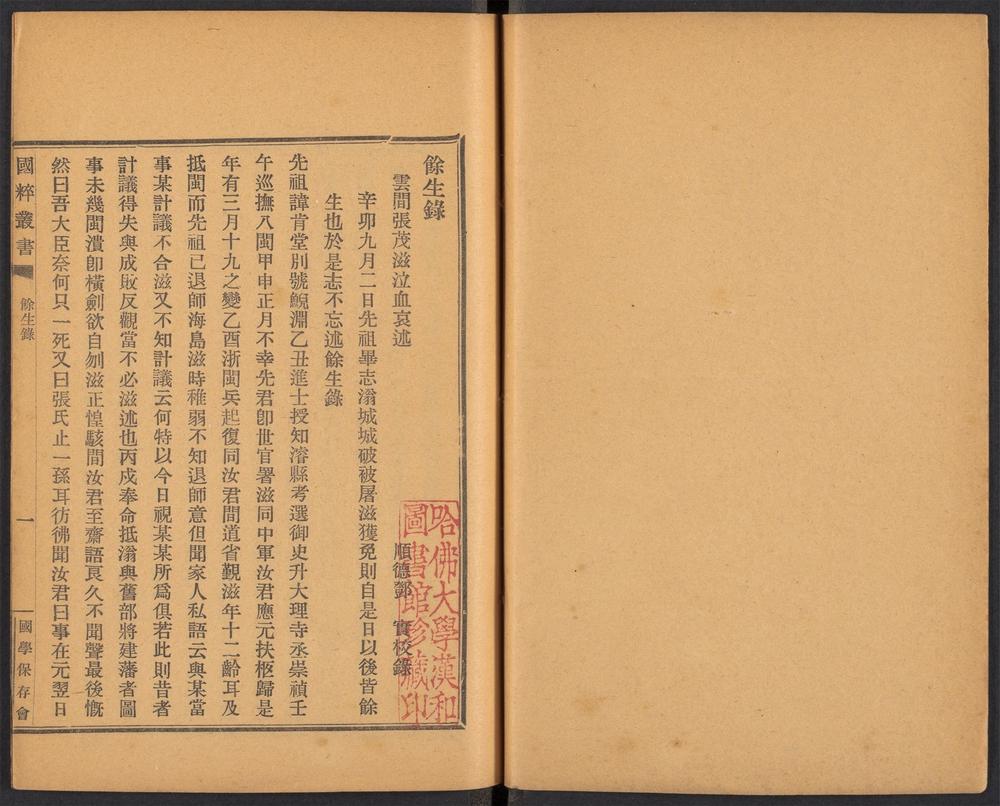 餘生錄
雲間張茂滋泣血哀述
順德鄧 實校錄
辛卯九月二日先祖畢志滃城城破被屠滋獲免則自是日以後皆餘
生也於是志不忘述餘生錄
先祖諱肯堂別號鯢淵乙丑進士授知濬縣考選御史升大理寺丞崇禎壬
午巡撫八閩甲申正月不幸先君卽世官署滋同中軍汝君應元扶柩歸是
年有三月十九之變乙酉浙閩兵起復同汝君間道省覲滋年十二齡耳及
抵閩而先祖已退師海島滋時稚弱不知退師意但聞家人私語云與某當
事某計議不合滋又不知計議云何特以今日視某某所爲俱若此則昔者
計議得失與成敗反觀當不必滋述也丙戍奉命抵滃與舊部將建藩者圖
事未幾閩潰卽橫劍欲自刎滋正惶駭間汝君至齋語良久不聞聲最後慨
然曰吾大臣奈何只一死又曰張氏止一孫耳彷彿聞汝君曰事在元翌日
國粹叢書
餘生錄
一
國學保存會
哈佛大學漢和
圖書館珍藏印